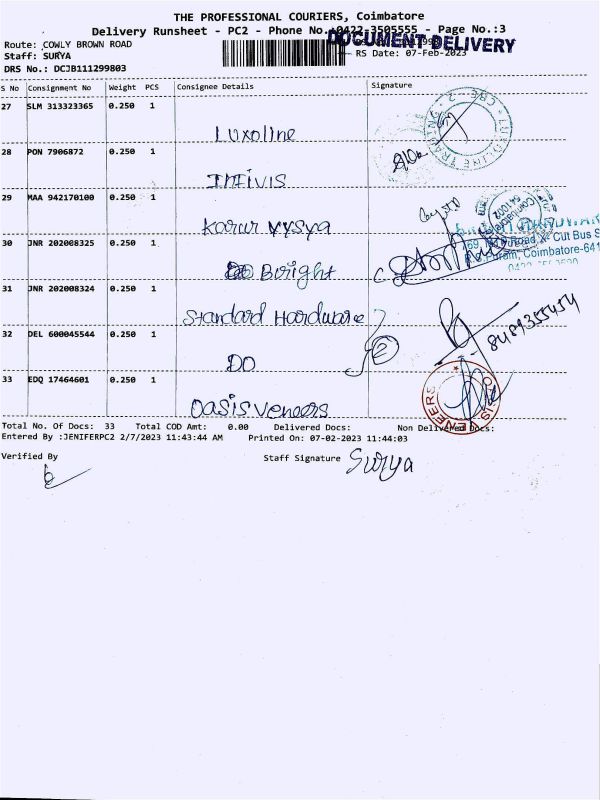 THE PROFESSIONAL COURIERS, Coimbatore
Delivery Runsheet - PC2 - Phone No.:0422-3505555 - Page No.:3
DOCUMENT DELIVERY
Route: COWLY BROWN ROAD
Staff: SURYA
RS Date: 07-Feb-2023
DRS No.: DCJB111299803
S No Consignment No Weight PCS Consignee Details Signature
27 SLM 313323365 0.250 1
Luxoline
28 PON 7906872 0.250 1
29 MAA 942170100 0.250 1
Karur vysya
30 JNR 202008325 0.250 1
Bright
31 JNR 202008324 0.250 1
Standard Hardware
32 DEL 600045544 0.250 1
DO
2
33 EDQ 17464601 0.250 1
Oasis veneers
Cut Bus S
Coimbatore-641
8489355454
Total No. Of Docs: 33 Total COD Amt: 0.00 Delivered Docs: Non Delivered Docs:
Entered By :JENIFERPC2 2/7/2023 11:43:44 AM Printed On: 07-02-2023 11:44:03
Verified By Staff Signature Surya